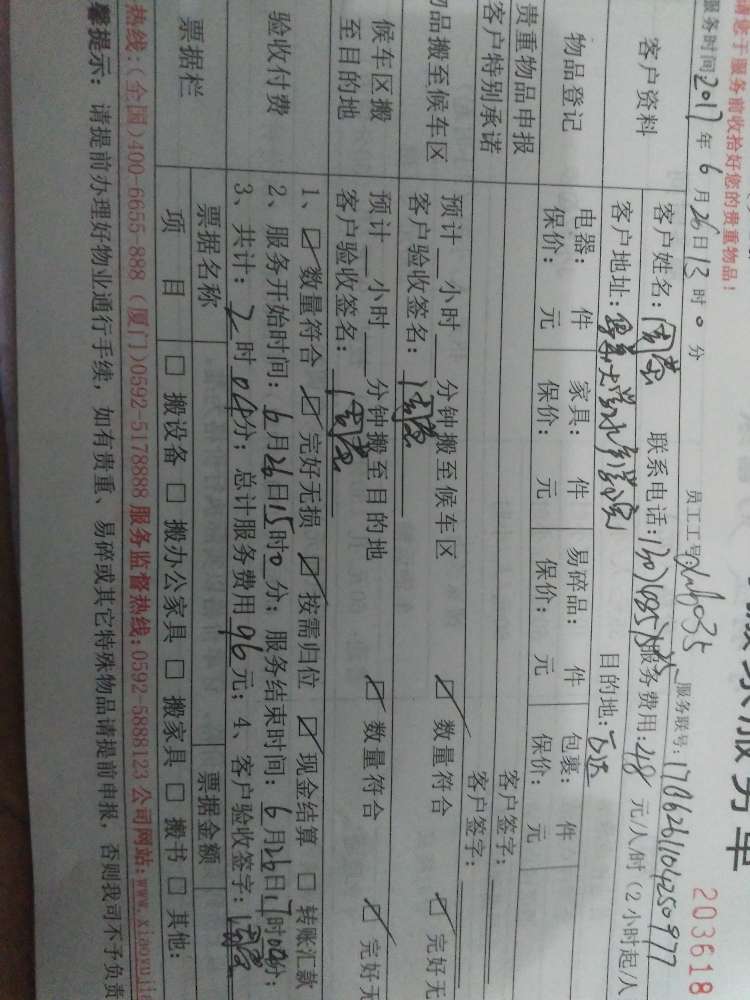 服务单
203618
请您于服务前收拾好您的贵重物品！
服务时间2017年6月26日13时0分 员工工号 服务联号:1706261104250977
客户资料
客户姓名: 联系电话: 服务费用:48元/人/时(2小时起/人
客户地址: 目的地:
物品登记
电器: 件 家具: 件 易碎品: 件 包裹: 件
保价: 元 保价: 元 保价: 元 保价: 元
贵重物品申报 客户签字:
客户特别承诺 客户签字:
物品搬至候车区
预计__小时__分钟搬至候车区 ☑数量符合 ☑完好无
客户验收签名:
候车区搬至目的地
预计__小时__分钟搬至目的地 ☑数量符合 ☑完好无
客户验收签名:
验收付费
1、☑数量符合 ☑完好无损 ☑按需归位 ☑现金结算 □转账汇款
2、服务开始时间:6月26日15时0分; 服务结束时间:6月26日17时04分;
3、共计:2时04分; 总计服务费用96元; 4、客户验收签字:
票据栏
票据名称 票据金额
项目 □搬设备 □搬办公家具 □搬家具 □搬书 □其他:
热线:(全国)400-6655-888 (厦门)0592-5178888 服务监督热线:0592-5888123 公司网站:www.xiaoyujia
馨提示: 请提前办理好物业通行手续, 如有贵重、易碎或其它特殊物品请提前申报, 否则我司不予负责